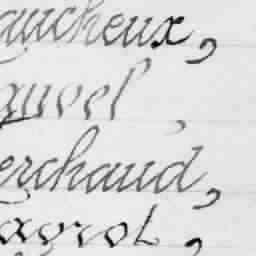 aucheux,
auvel,
erchaud,
ayrol,